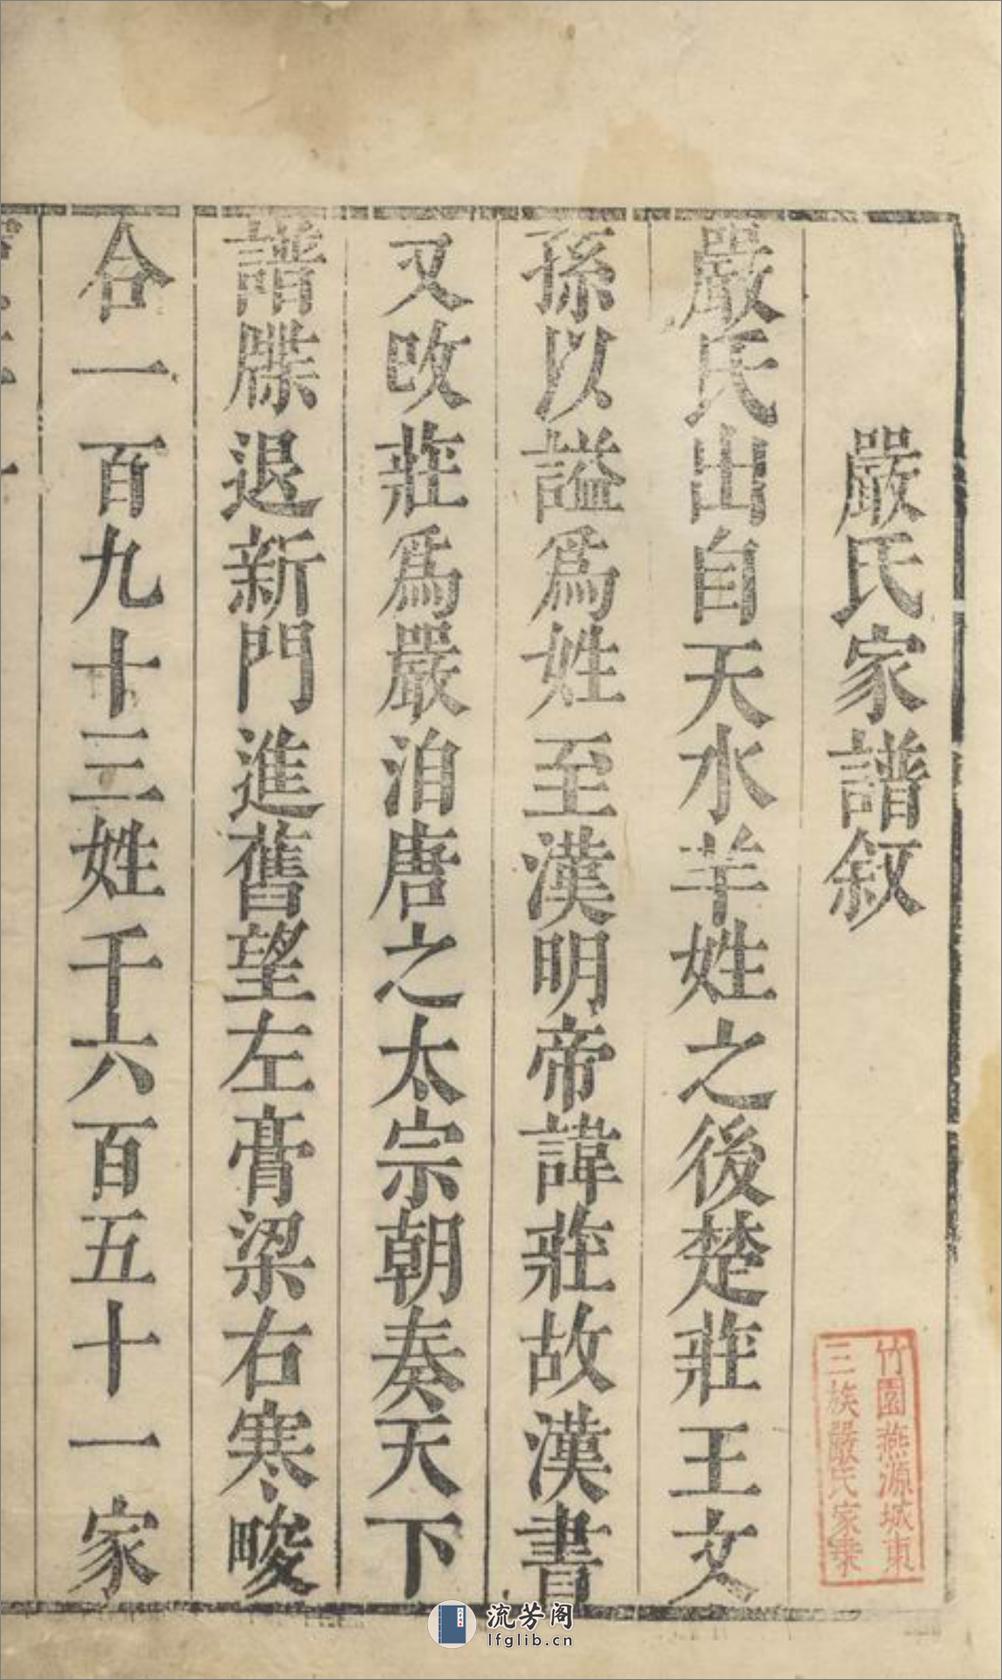 嚴氏家譜叙
嚴氏出自天水羋姓之後楚莊王文
孫以謚爲姓至漢明帝諱莊故漢書
又改莊爲嚴洎唐之太宗朝奏天下
譜牒退新門進舊望左膏梁右寒畯
合一百九十三姓千六百五十一家
竹園燕源城東
三族嚴氏家乗
流芳阁
lfglib.cn